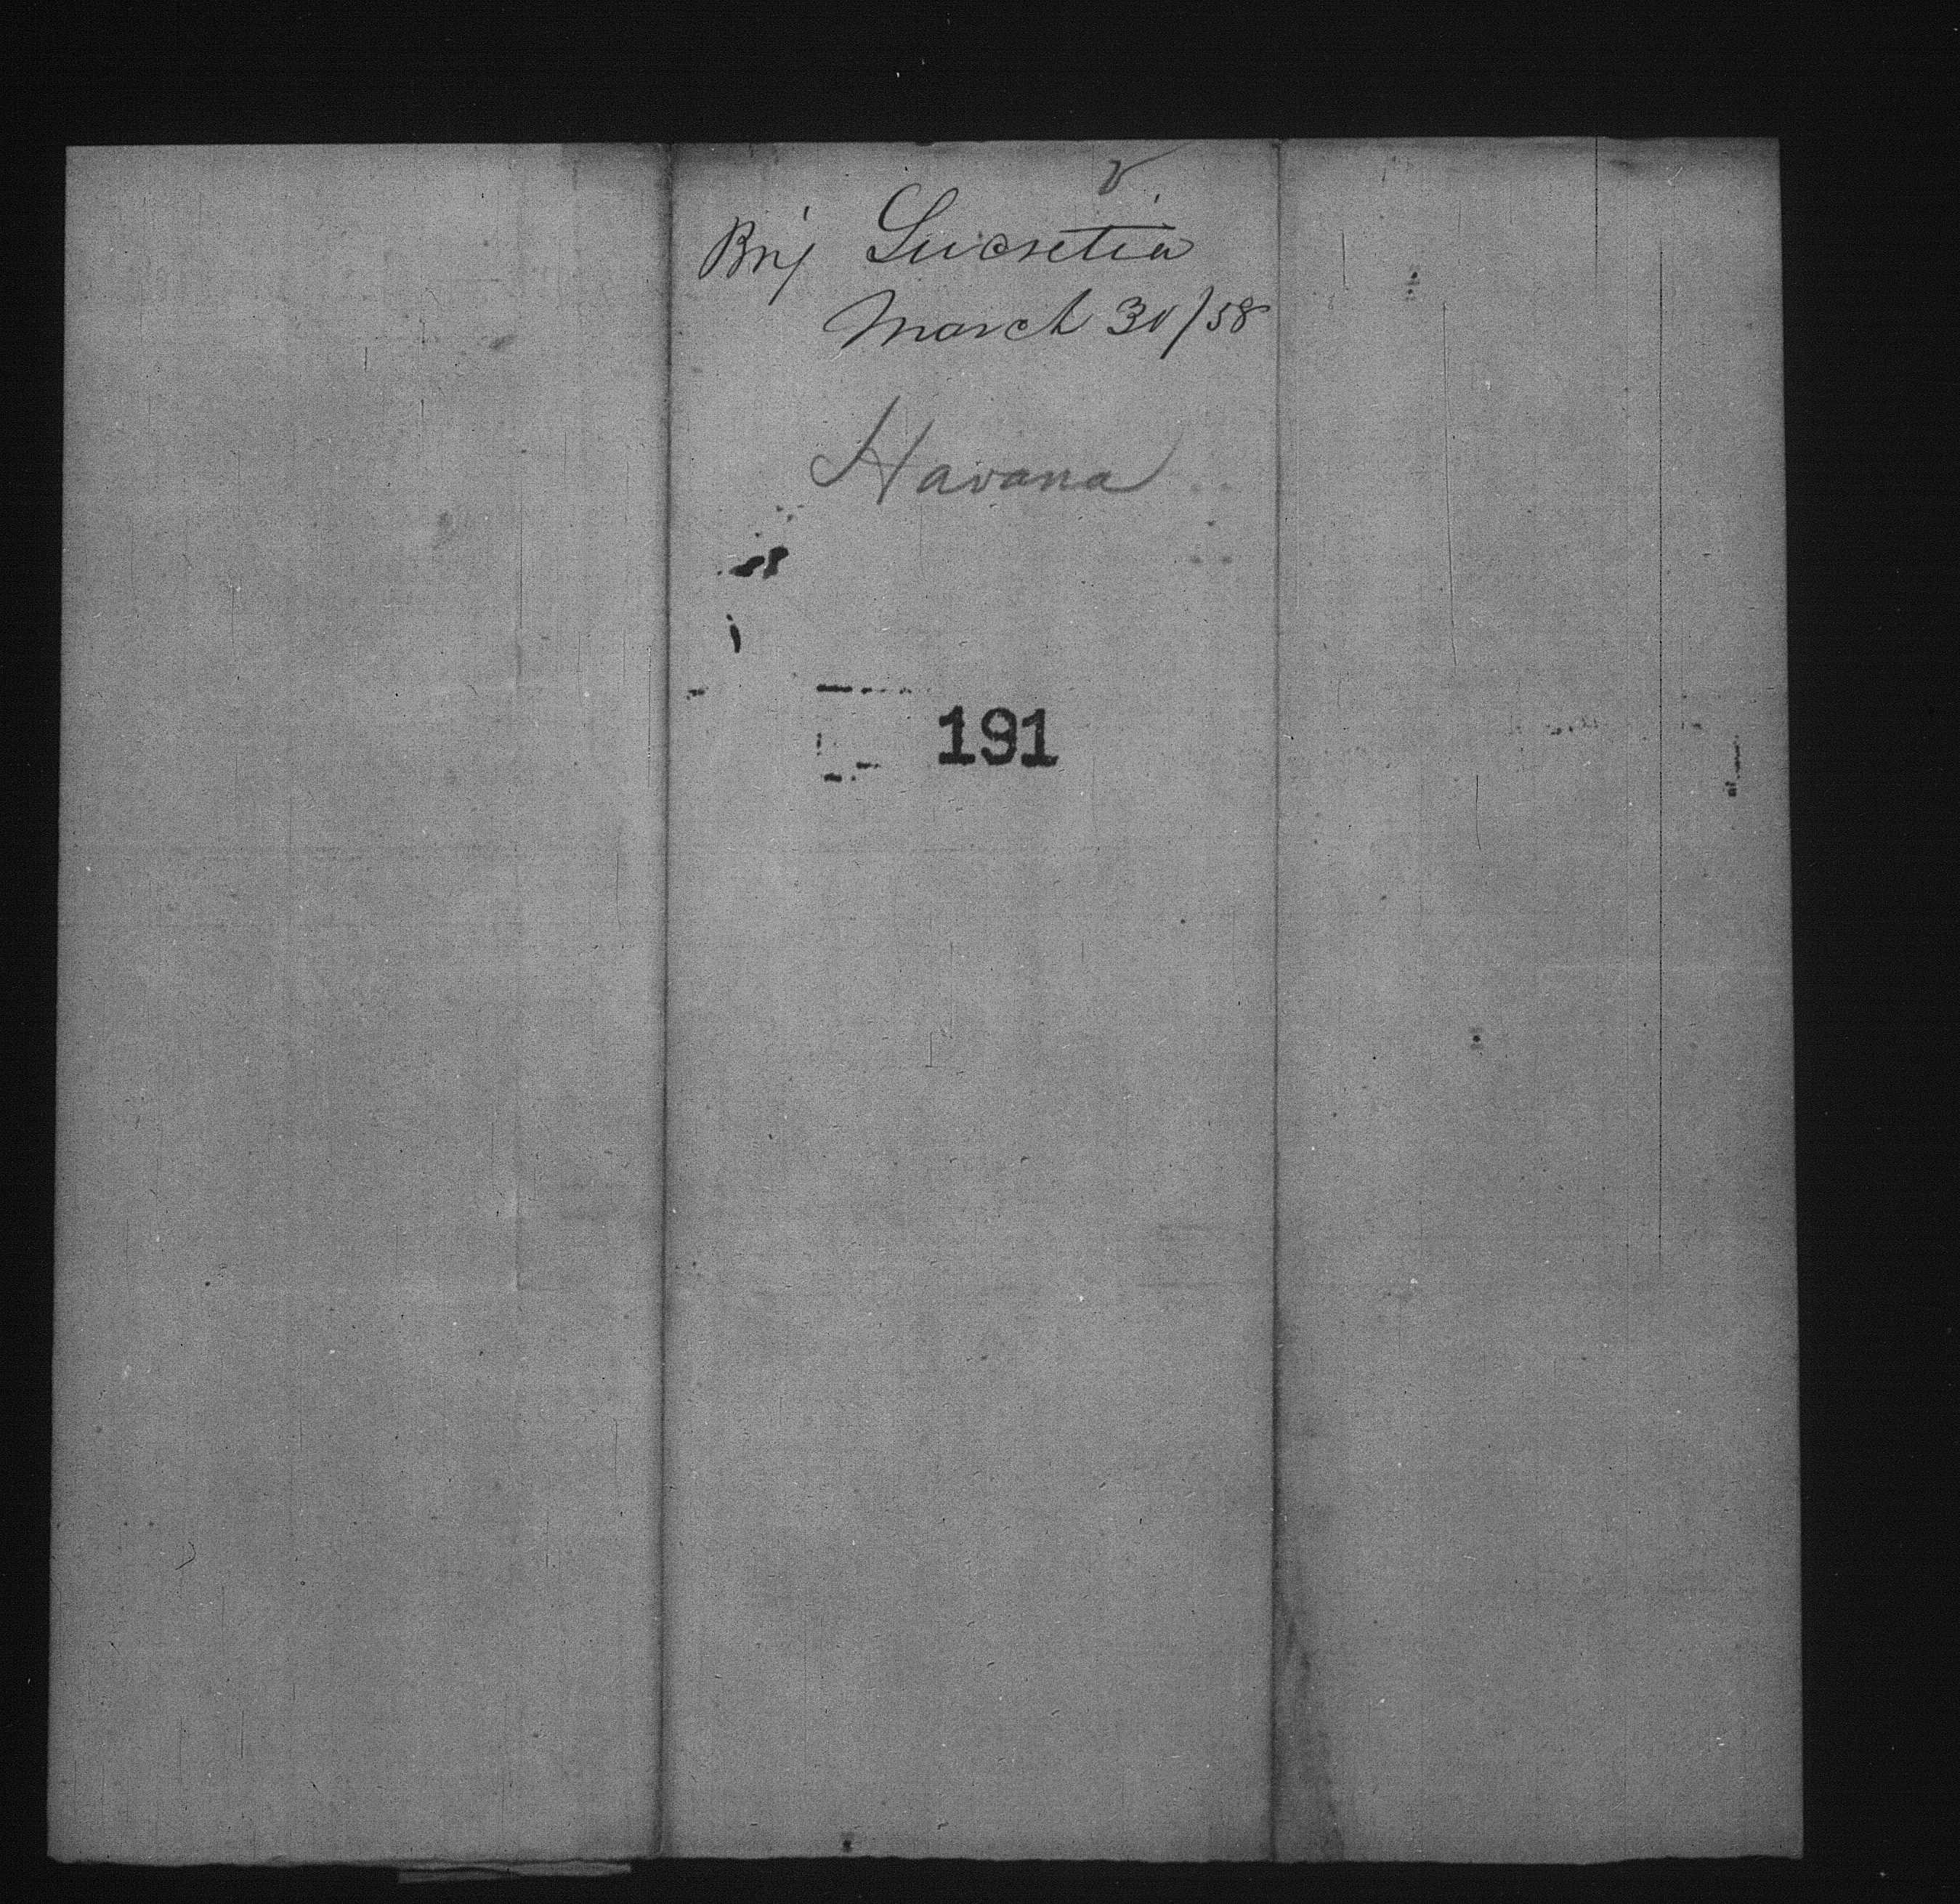 Brig Lucretia
March 30/58
Havana
191